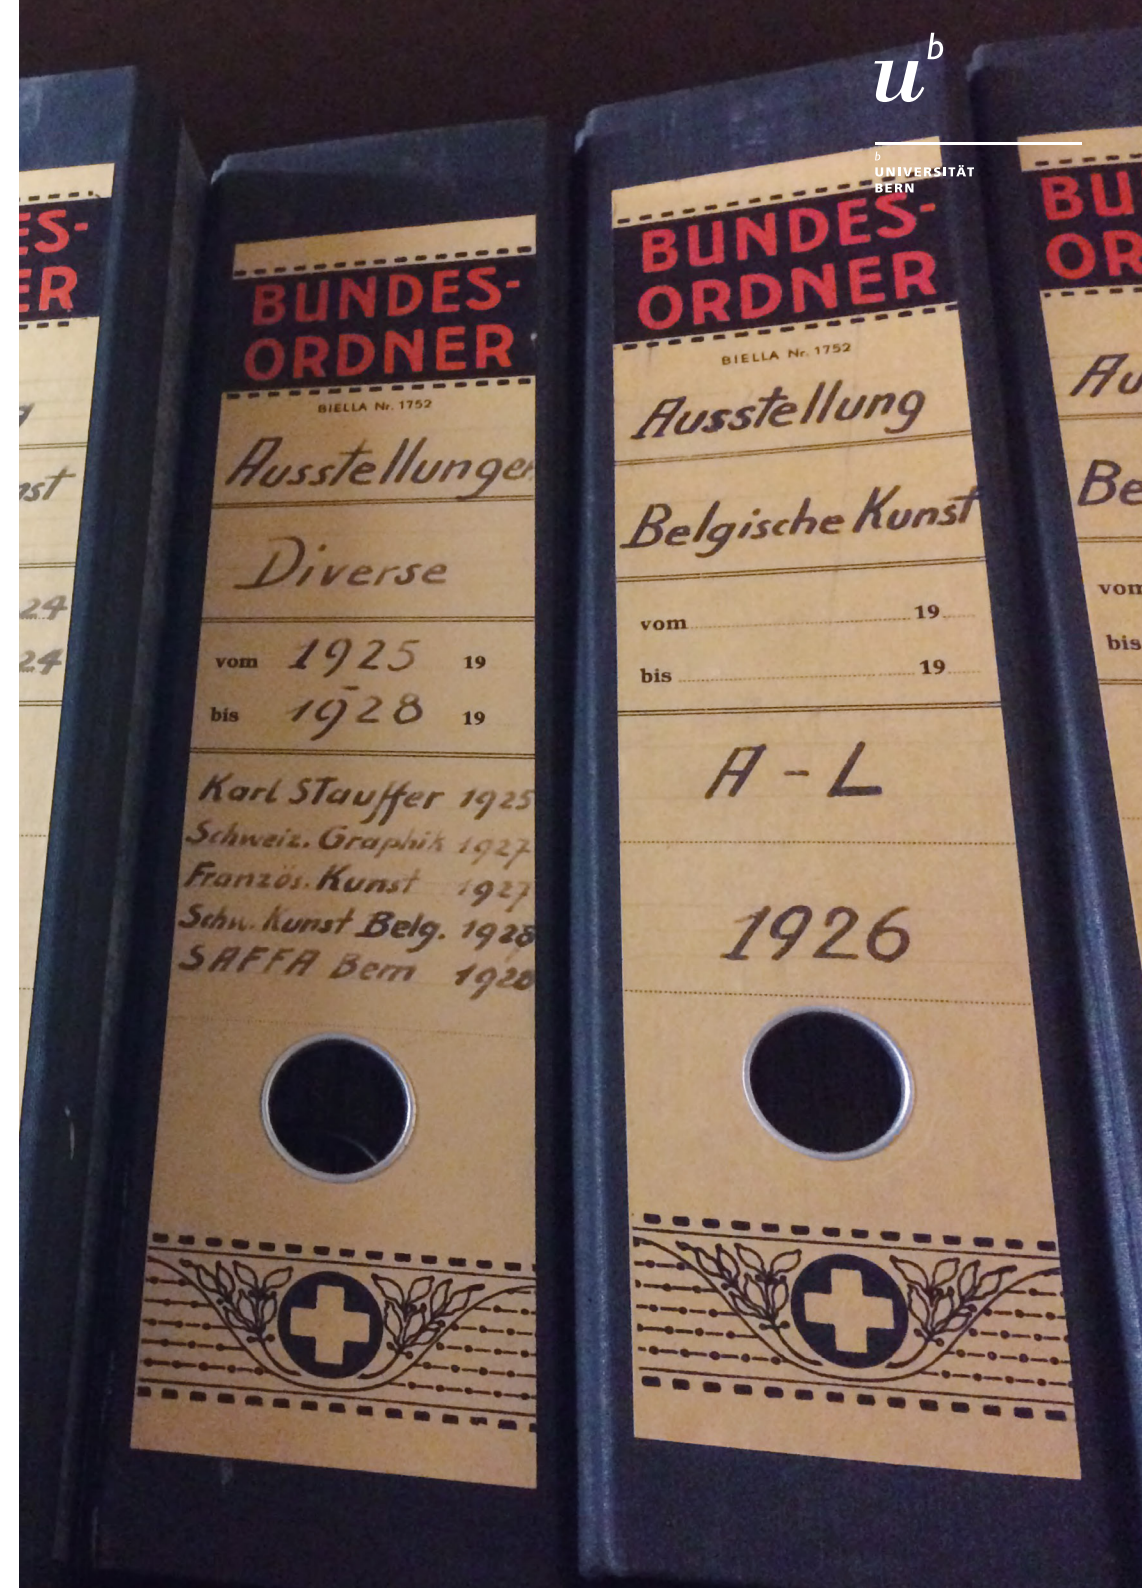 u^b
b
UNIVERSITÄT
BERN
ES-
ER
24
24
BUNDES-
ORDNER
BIELLA Nr. 1752
Ausstellungen
Diverse
vom 1925 19
bis 1928 19
Karl Stauffer 1925
Schweiz. Graphik 1927
Französ. Kunst 1927
Schw. Kunst Belg. 1928
SAFFA Bern 1928
BUNDES-
ORDNER
BIELLA Nr. 1752
Ausstellung
Belgische Kunst
vom 19
bis 19
A - L
1926
BU
OR
Au
Be
vom
bis